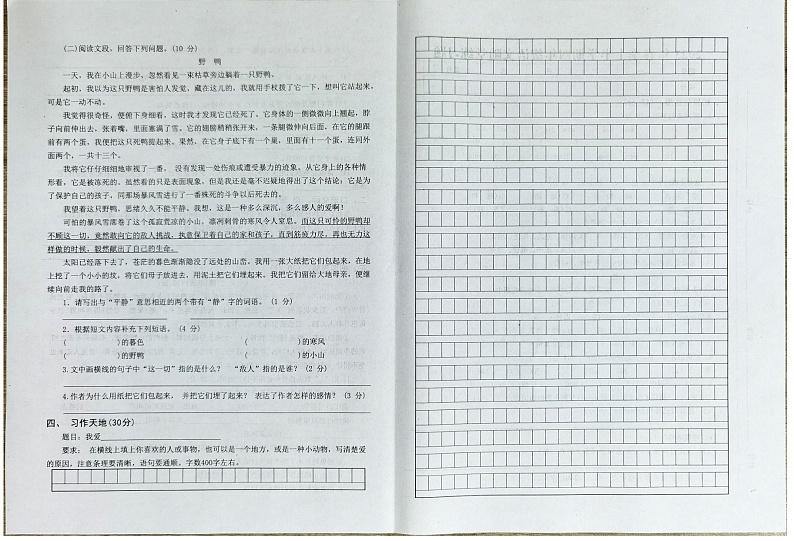 (二)阅读文段，回答下列问题。(10 分)
野 鸭
一天，我在小山上漫步，忽然看见一束枯草旁边躺着一只野鸭。
起初，我以为这只野鸭是害怕人发觉，藏在这儿的，我就用手杖拨了它一下，想叫它站起来，
可是它一动不动。
我觉得很奇怪，便俯下身细看，这时我才发现它已经死了。它身体的一侧微微向上翘起，脖
子向前伸出去，张着嘴，里面塞满了雪。它的翅膀稍稍张开来，一条腿微伸向后面，在它的腿跟
前有两个蛋，我便把这只死鸭提起来。果然，在它身子底下有一个巢，里面有十一个蛋，连同外
面两个，一共十三个。
我将它仔仔细细地审视了一番， 没有发现一处伤痕或遭受暴力的迹象。从它身上的各种情
形看，它是被冻死的。虽然看的只是表面现象，但是我还是毫不迟疑地得出了这个结论：它是为
了保护自己的孩子，同那场暴风雪进行了一番殊死的斗争以后死去的。
我望着这只野鸭，思绪久久不能平静。我想，这是一种多么深沉，多么感人的爱啊！
可怕的暴风雪席卷了这个孤寂荒凉的小山，凛冽刺骨的寒风令人窒息。而这只可怜的野鸭却
不顾这一切，竟然敢向它的敌人挑战，执意保卫着自己的家和孩子，直到筋疲力尽，再也无力这
样做的时候，毅然献出了自己的生命。
太阳已经落下去了，苍茫的暮色渐渐隐没了远处的山峦。我用一张大纸把它们包起来，在地
上挖了一个小小的坟，将它们母子放进去，用泥土把它们埋起来。我把它们留给大地母亲，便继
续向前走我的路了。
1．请写出与“平静”意思相近的两个带有“静”字的词语。 (1 分)
2．根据短文内容补充下列短语。 (4 分)
( )的暮色 ( )的寒风
( )的野鸭 ( )的小山
3.文中画横线的句子中“这一切”指的是什么？ “敌人”指的是谁？ (2 分)
4.作者为什么用纸把它们包起来， 并把它们埋了起来？ 表达了作者怎样的感情？ (3 分)
四、 习作天地(30分)
题目：我爱
要求： 在横线上填上你喜欢的人或事物，也可以是一个地方，或是一种小动物，写清楚爱
的原因，注意条理要清晰，语句要通顺。字数400字左右。